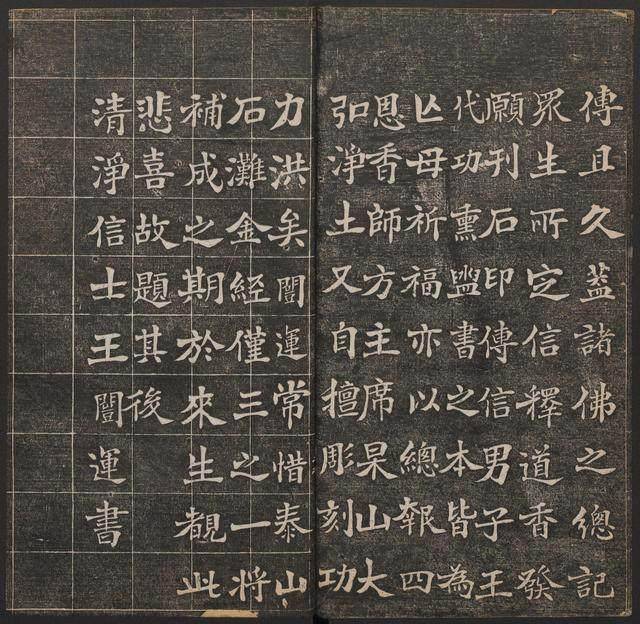 傳且久蓋諸佛之總記
眾生所定信釋道香發
願刊石印傳信男子王
代功熏盥書之本皆為
亾母祈福亦以總報四
恩香師方主席杲山大
弘淨土又自擅彫刻功
力洪矣闓運常惜泰山
石灘金經僅三之一將
補成之期於來生覩此
悲喜故題其後
清淨信士王闓運書